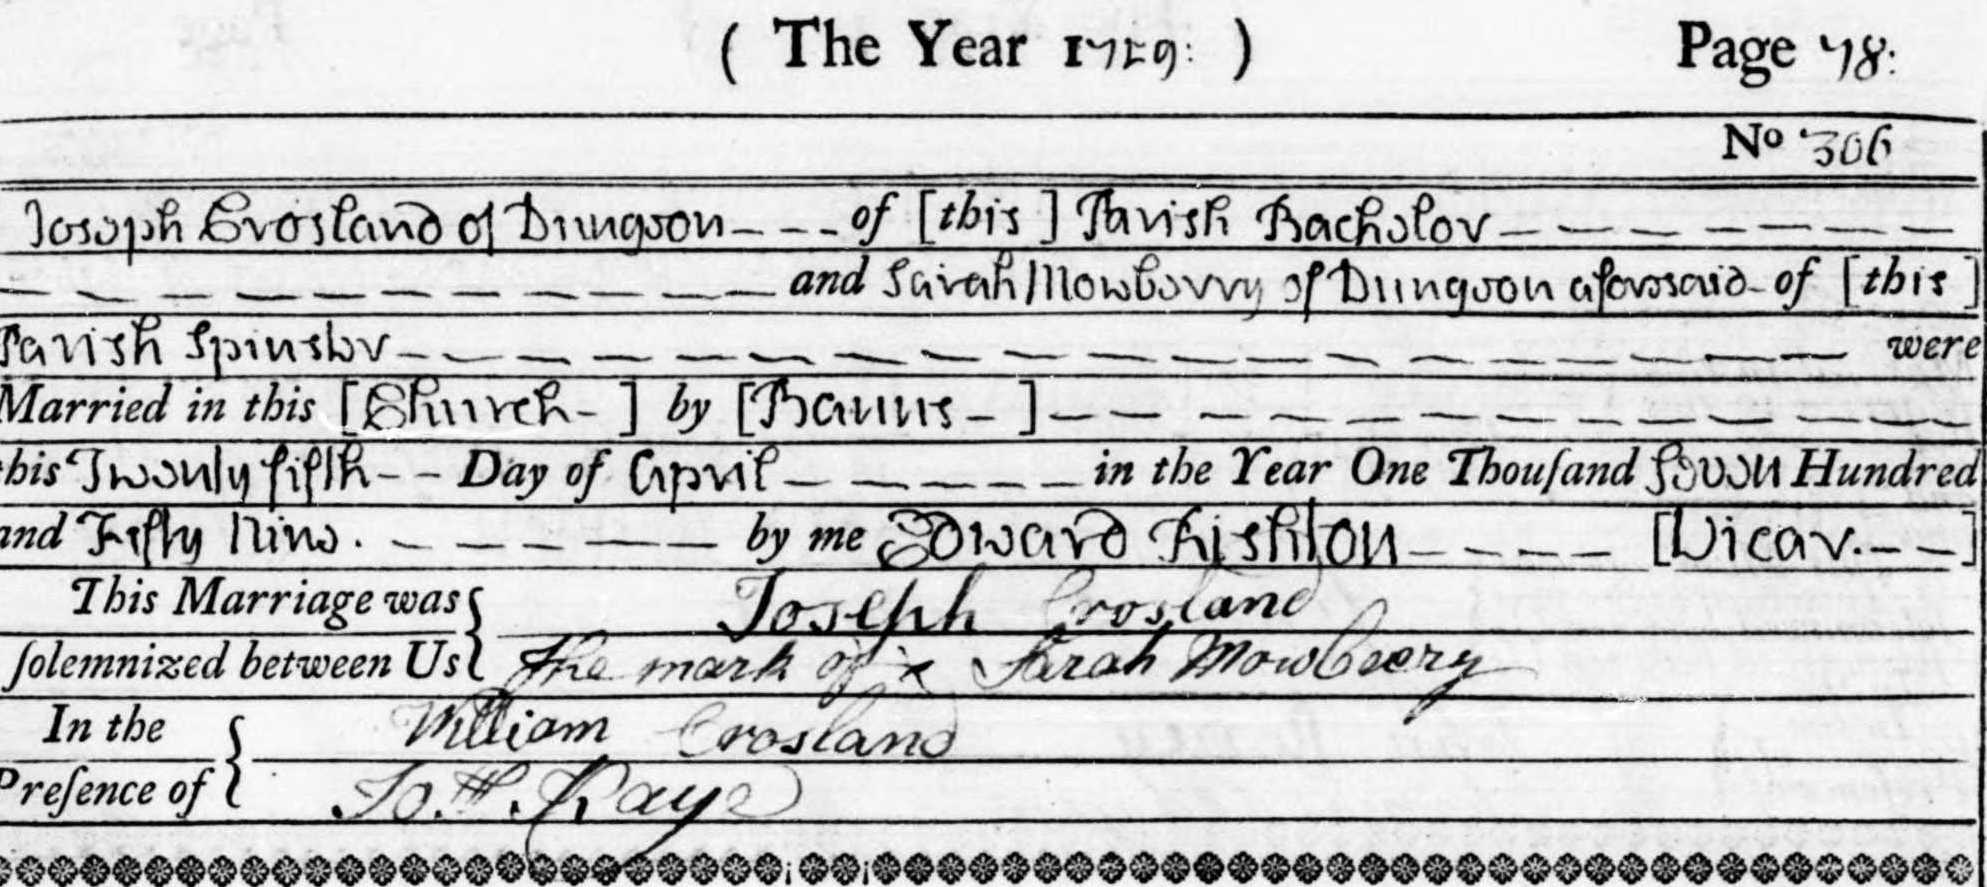 ( The Year 1759: ) Page 78:
No 306
Joseph Crosland of Dungeon - - - of [this] Parish Bachelor - - - - - - -
- - - - - - - - - - and Sarah Mowberry of Dungeon aforesaid - of [this]
Parish Spinster - - - - - - - - - - - - - - - - - were
Married in this [Church - ] by [Banns - ] - - - - - - - - - - -
this Twenty fifth - - Day of April - - - - - in the Year One Thouſand Seven Hundred
and Fifty Nine. - - - - - by me Edward Rishton - - - - [Vicar. - - ]
This Marriage was { Joseph Crosland
ſolemnized between Us { The mark of x Sarah Mowbeery
In the { William Crosland
Preſence of { Kaye